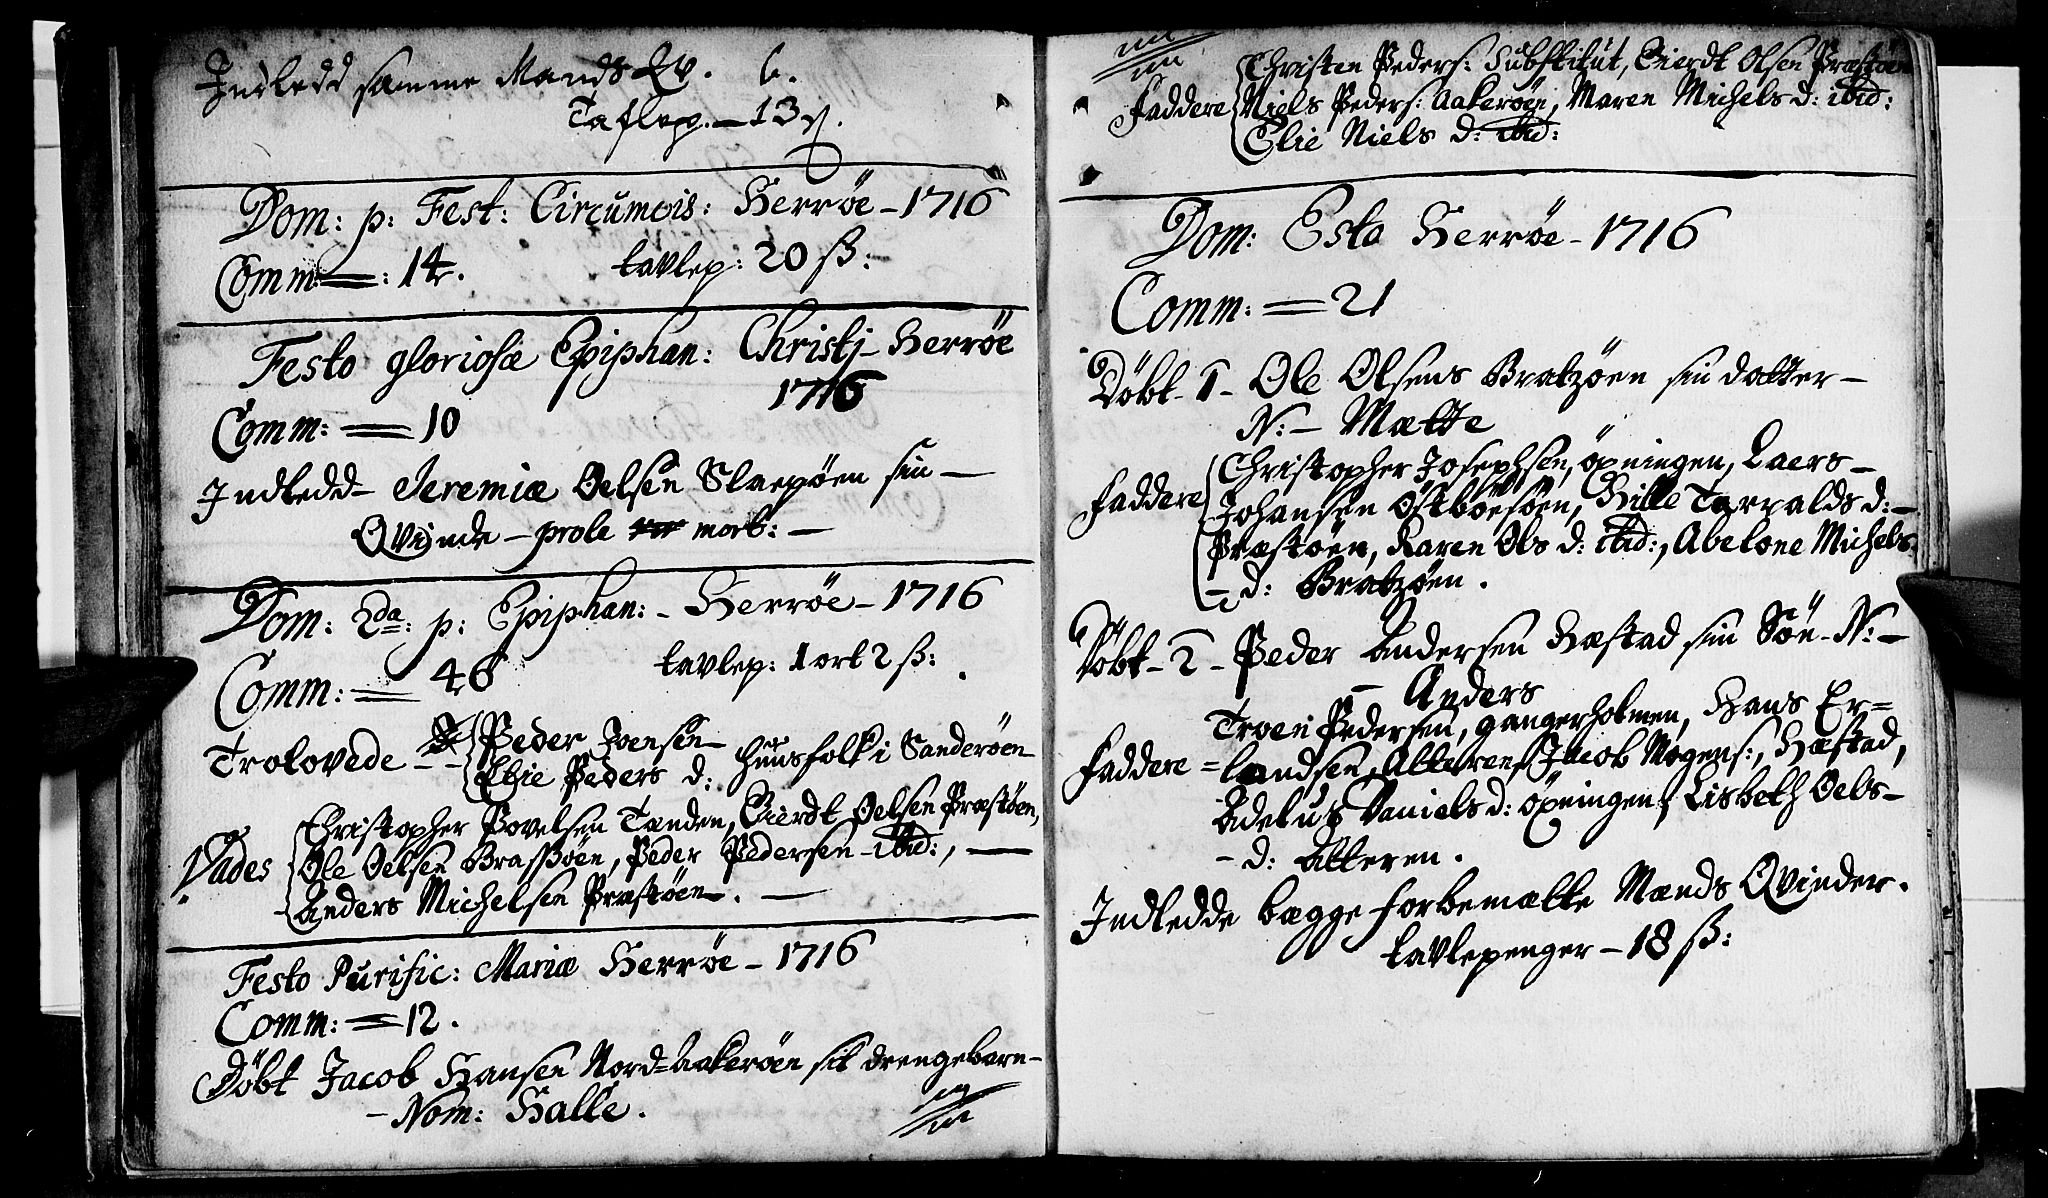 Indledd samme Mands Qv. 6.
Taflep. – 13 ß.
Dom: p: Fest: Circumcis: Herrøe – 1716
Comm: = : 14. tavlep: 20 ß:
Festo gloriosæ Epiphan: Christj – Herrøe
1716
Comm: = 10
Indledd – Jeremiæ Oelsen Slapøen sin –
Qvinde – prole mort: –
Dom: 2da: p: Epiphan: – Herrøe – 1716
Comm: = 46 tavlep: 1 ort 2 ß:
Trolovede – Peder Joensen –
Elsie Peders d: huusfolk i Sanderøen
Christopher Povelsen Tenden, Gierdt Oelsen Præstøen,
Vades Ole Oelsen Brasøen, Peder Pedersen – ibid:, –
Anders Michelsen Præstøen. –
Festo Purific: Mariæ Herrøe – 1716
Comm: = 12.
Døbt Jacob Hansen Nord=Aakerøen sit drengebarn –
– Nom: Halle.
Christen Peders: Substitut, Gierdt Olsen Præstøen
Faddere Niels Peders: Aakerøen, Maren Michels d: ibid:
Elie Niels d: ibid:
Dom: Esto Herrøe – 1716
Comm: = 21
Døbt – 1 – Ole Olsens Bratzøen sin datter –
N: – Mætte
Christopher Josephsen, öpningen, Laers –
Faddere Johansen Östböesöen, Kille Tarralds d: –
Præstøen, Karen Ols d: ibid:, Abelone Michels
– d: Bratzøen.
Døbt – 2 – Peder Andersen Hæstad sin Søn – N: –
– Anders
Troen Pedersen, gangerholmen, Hans Er=
Faddere =landsen, Alteren, Jacob Mogens:, Hæstad,
Adelus Daniels d: öpningen, Lisbeth Oels –
– d: Alteren.
Indledde begge forbemælte Mænds Qvinder.
tavlepenger – 18 ß: